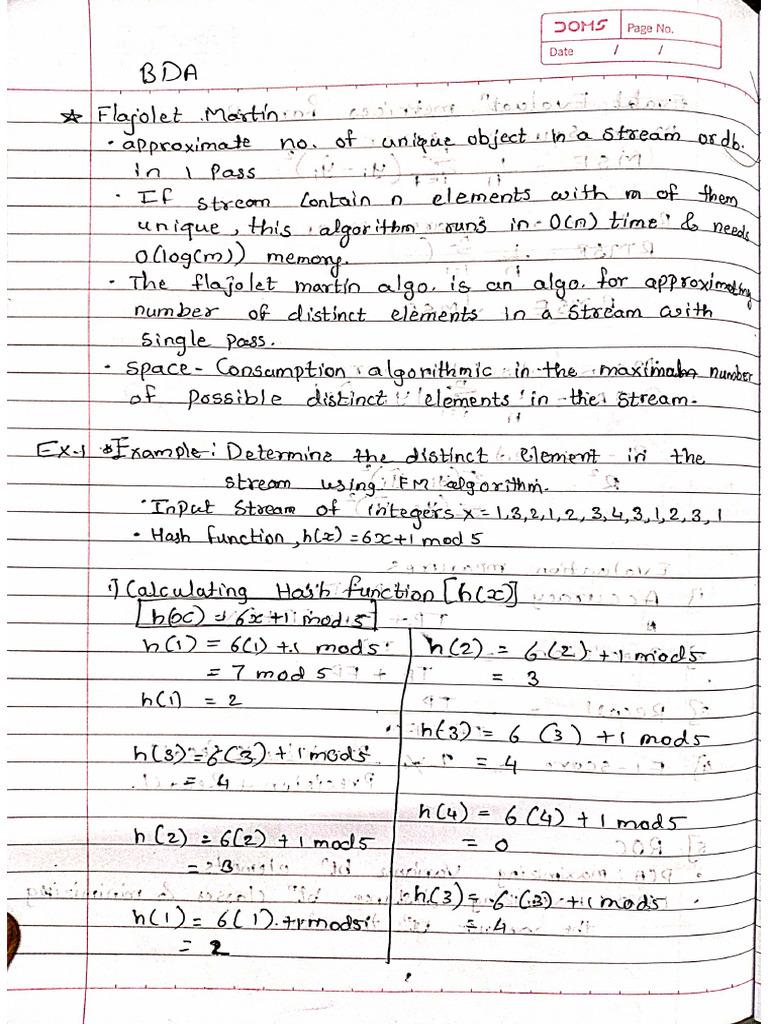 DOMS Page No.
Date / /
BDA
☆ Flajolet Martin
• approximate no. of unique object in a stream or db.
in 1 pass
• If stream contain n elements with m of them
unique, this algorithm runs in O(n) time & needs
O(log(m)) memory.
• The flajolet martin algo. is an algo. for approximating
number of distinct elements in a stream with
single pass.
• space-Consumption algorithmic in the maximum number
of possible distinct elements in the stream.
Ex-1 Example: Determine the distinct element in the
stream using FM algorithm.
• Input stream of integers x = 1,3,2,1,2,3,4,3,1,2,3,1
• Hash function, h(x) = 6x+1 mod 5
1) Calculating Hash function [h(x)]
h(x) = 6x+1 mod 5
h(1) = 6(1) +1 mod 5
= 7 mod 5
h(1) = 2
h(3) = 6(3) +1 mod 5
= 4
h(2) = 6(2) +1 mod 5
= 3
h(1) = 6(1) +1 mod 5
= 2
h(2) = 6(2) +1 mod 5
= 3
h(3) = 6(3) +1 mod 5
= 4
h(4) = 6(4) +1 mod 5
= 0
h(3) = 6(3) +1 mod 5
= 4